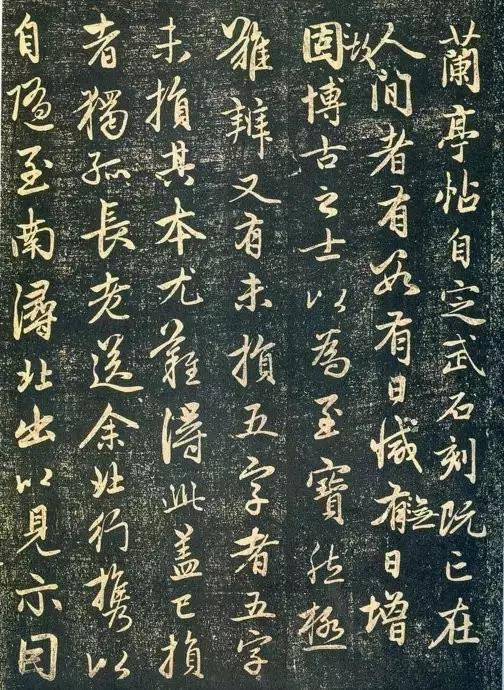 蘭亭帖自定武石刻既亡在
人間者有數有日減有無日增
固故博古之士以為至寶然極
難辨又有未損五字者五字
未損其本尤難得此盖已損
者獨孤長老送余北行攜以
自随至南潯北出以見示因